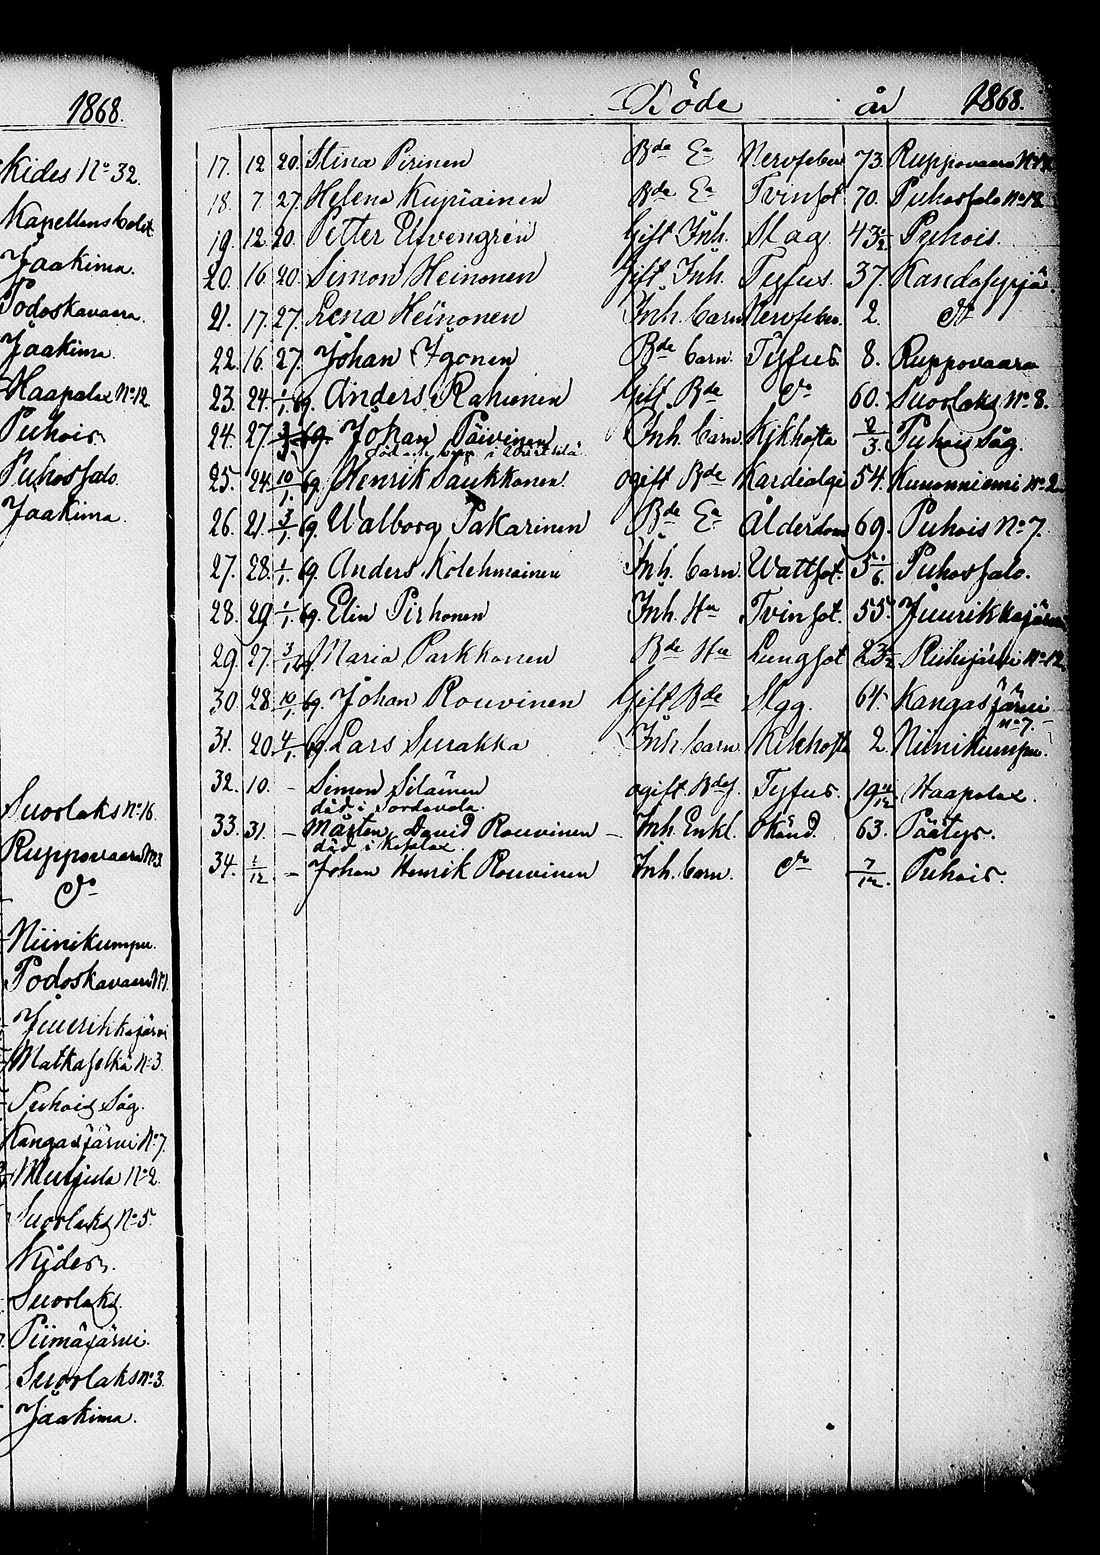 1868.
Kides No 32.
Kapellans bolst.
Jaakima.
Podoskavaara.
Jaakima.
Haapalax No 12
Puhois
Puhossalo.
Jaakima.
Suorlaks No 16.
Ruppovaara No 3
do
Niinikumpu.
Podoskavaara No 1.
Juurikkajärvi
Matkaselkä No 3.
Puhois Såg.
Kangasjärvi No 7.
Mutjula No 2.
Suorlaks No 5.
Kides.
Suorlaks.
Piimäjärvi.
Suorlaks No 3.
Jaakima.
Döde år 1868.
17. 12 20. Stina Pirinen Bde Ea Nervfeber 73. Ruppovaara
18. 7 27. Helena Kupiainen Bde Ea Tvinsot 70. Puhossalo No 12
19. 12. 20. Petter Elfvengren Gift Inh. Slag 43 1/2 Puhois.
20. 16. 20. Simon Heinonen Gift Inh. Tyfus. 37. Kandasyrjä.
21. 17. 27. Lena Heinonen Inh. barn Nervfeber. 2. do
22. 16. 27. Johan Igonen Bde barn. Tyfus 8. Ruppovaara
23. 24. 1/1 69. Anders Rahunen Gift Bde do 60. Suorlaks No 8.
24. 27. 3/1 69. Johan Päivinen Inh. barn Kikhosta 2/3. Puhois Såg.
25. 24. 10/1. 69. Henrik Saukkonen. ogift Bde Kardialgi 54. Kunonniemi No 2
26. 21. 3/1 69. Walborg Pakarinen Bde Ea Ålderdom 69. Puhois No 7.
27. 28. 1/1. 69. Anders Kolehmainen Inh. barn. Wattsot. 5 1/6. Puhossalo.
28. 29 1/1 69. Elin Pirhonen Inh. Hu Tvinsot. 55. Juurikkajärvi
29. 27. 3/12 Maria Parkkonen Bde Hu Lungsot 23 1/2 Riihijärvi No 12.
30. 28. 10/1. 69. Johan Rouvinen Gift Bde Slag. 64. Kangasjärvi
No 7.
31. 20. 4/1 69. Lars Surakka Inh. barn Kikhosta 2. Niinikumpu.
32. 10. - Simon Siläinen ogift Bdes. Tyfus. 19 11/12 Haapalax.
död i Sordavala.
33. 31. - Mårten David Rouvinen - Inh. Enkl. Okänd. 63. Päätys.
34. 1/12 - Johan Henrik Rouvinen Inh. barn. do 7/12. Puhois.